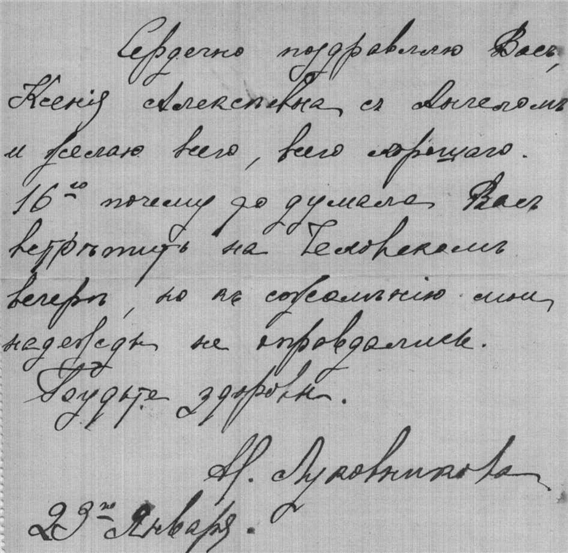 Сердечно поздравляю Васъ,
Ксенія Алексѣевна съ Ангеломъ
и желаю всего, всего хорошаго.
16го почему то думала Васъ
встрѣтить на Чеховскомъ
вечерѣ, но къ сожалѣнію мои
надежды не оправдались.
Будьте здоровы.
Луковникова
23го Января.